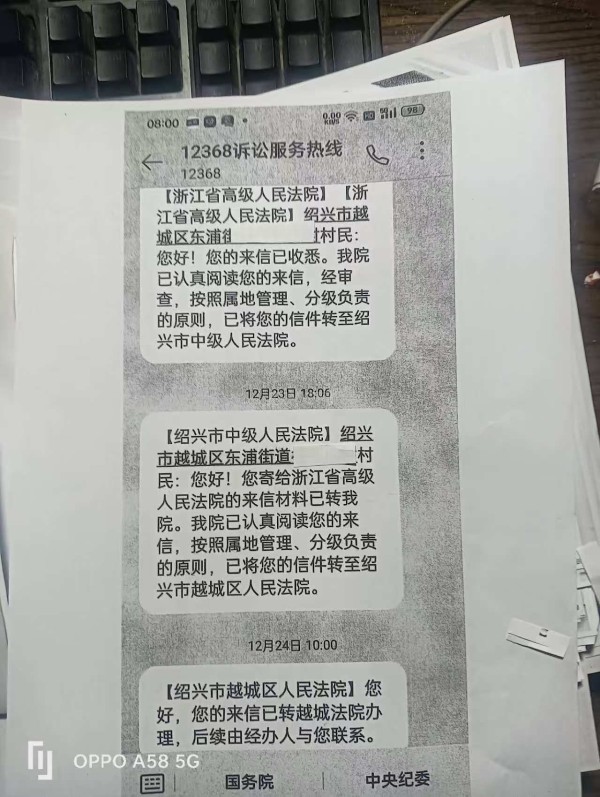 08:00
0.00 KB/s
5G
98
12368诉讼服务热线
12368
【浙江省高级人民法院】【浙
江省高级人民法院】绍兴市越
城区东浦街
村民：
您好！您的来信已收悉。我院
已认真阅读您的来信，经审
查，按照属地管理、分级负责
的原则，已将您的信件转至绍
兴市中级人民法院。
12月23日 18:06
【绍兴市中级人民法院】绍兴
市越城区东浦街道
村
民：您好！您寄给浙江省高级
人民法院的来信材料已转我
院。我院已认真阅读您的来
信，按照属地管理、分级负责
的原则，已将您的信件转至绍
兴市越城区人民法院。
12月24日 10:00
【绍兴市越城区人民法院】您
好，您的来信已转越城法院办
理，后续由经办人与您联系。
国务院
中央纪委
OPPO A58 5G